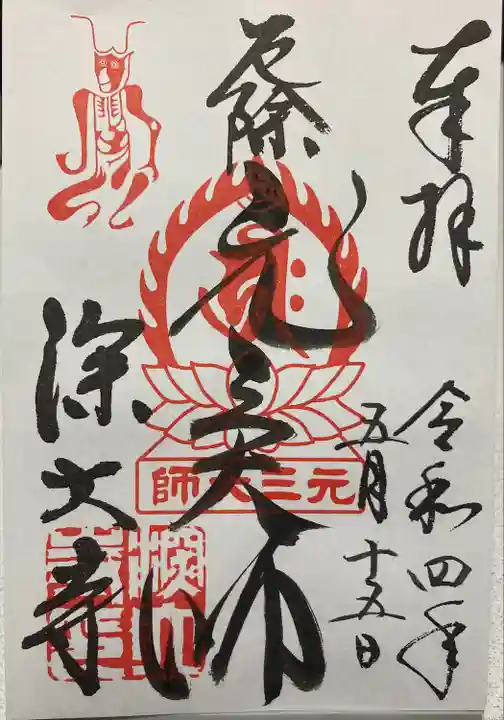 奉拝
令和四年
五月十五日
厄除
元三大師
元三大師
深大寺